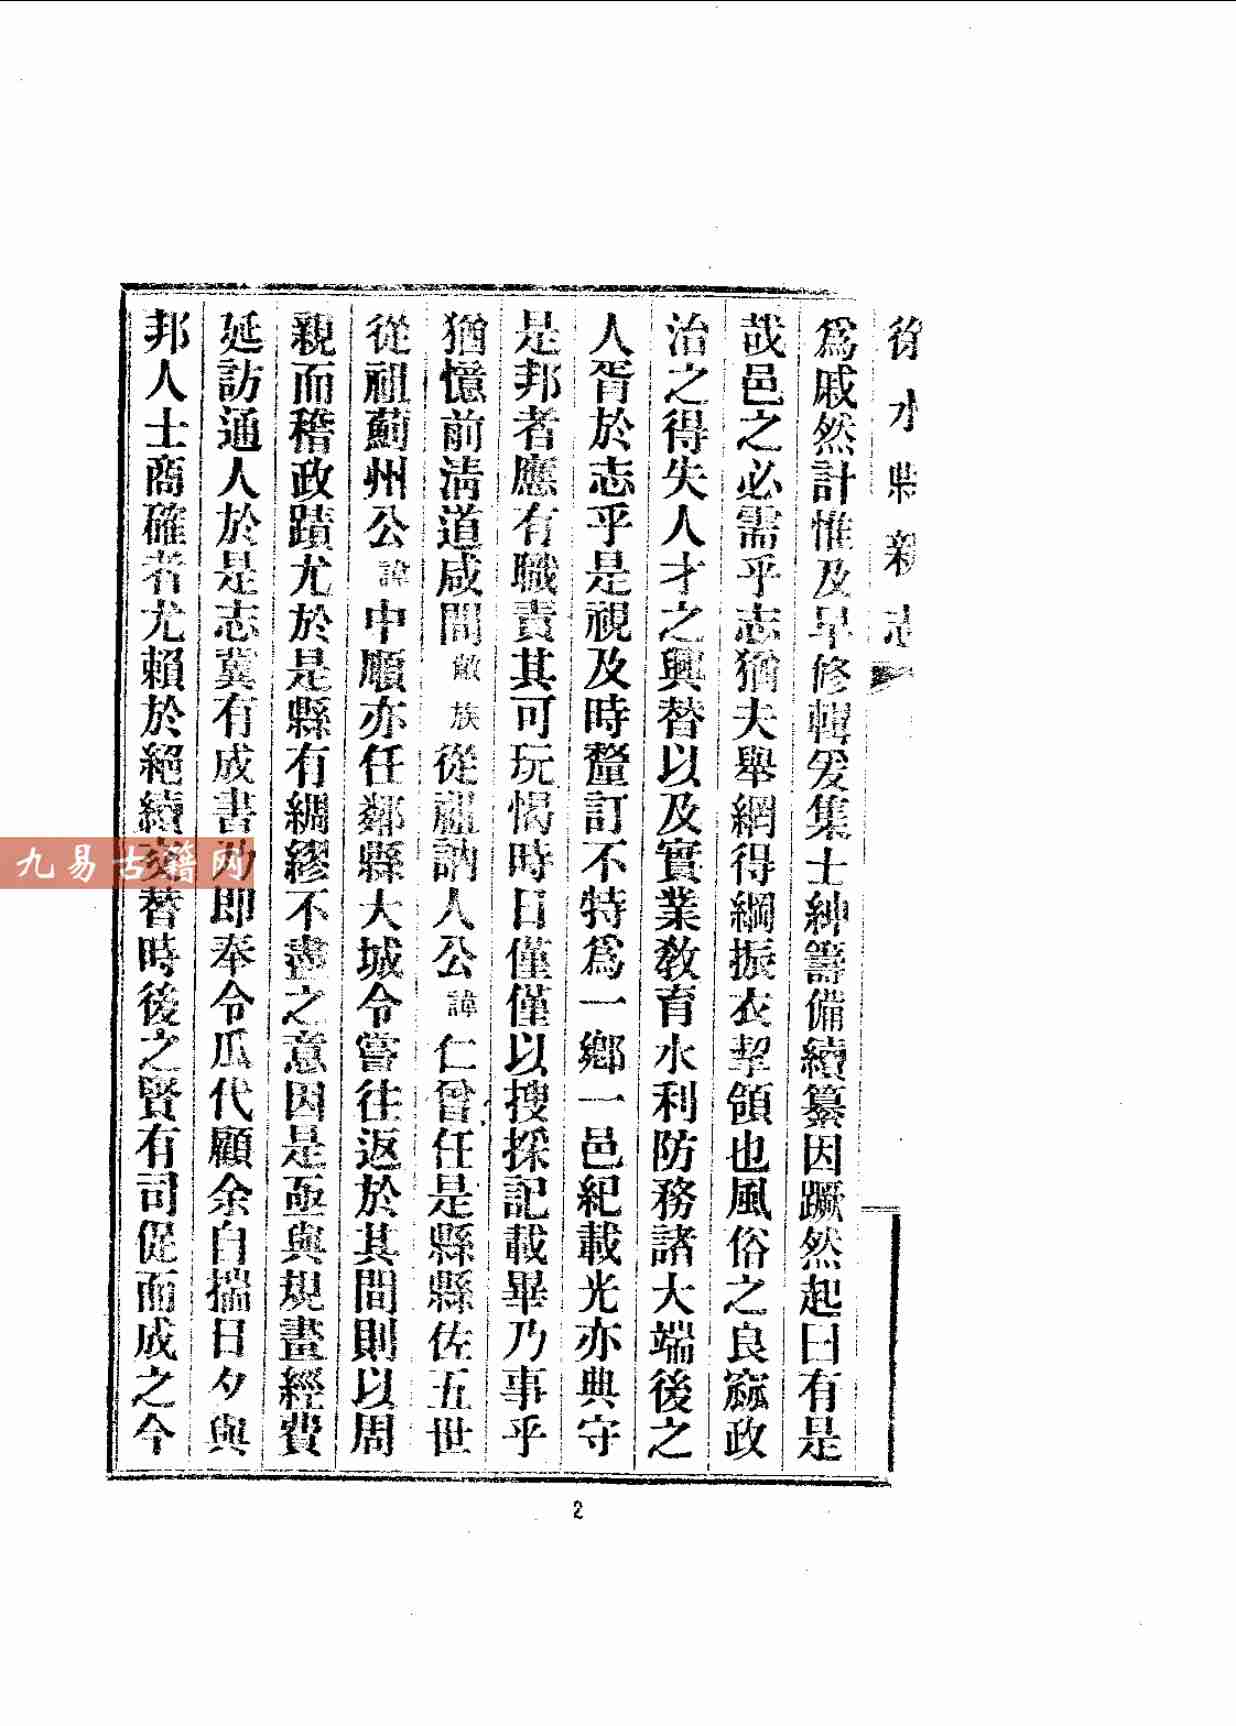 徐水縣新志
爲戚然計惟及早修輯爰集士紳籌備續纂因蹶然起曰有是
哉邑之必需乎志猶夫舉網得綱振衣挈領也風俗之良窳政
治之得失人才之興替以及實業教育水利防務諸大端後之
人胥於志乎是視及時釐訂不特爲一鄉一邑紀載光亦典守
是邦者應有職責其可玩愒時日僅僅以搜採記載畢乃事乎
猶憶前淸道咸間敝族從祖訥人公諱仁曾任是縣縣佐五世
從祖薊州公諱中順亦任鄰縣大城令嘗往返於其間則以周
親而稽政蹟尤於是縣有綢繆不盡之意因是亟與規畫經費
延訪通人於是志冀有成書乃即奉令瓜代顧余自揣日夕與
邦人士商確者尤賴於絕續交替時後之賢有司促而成之今
2
九易古籍网